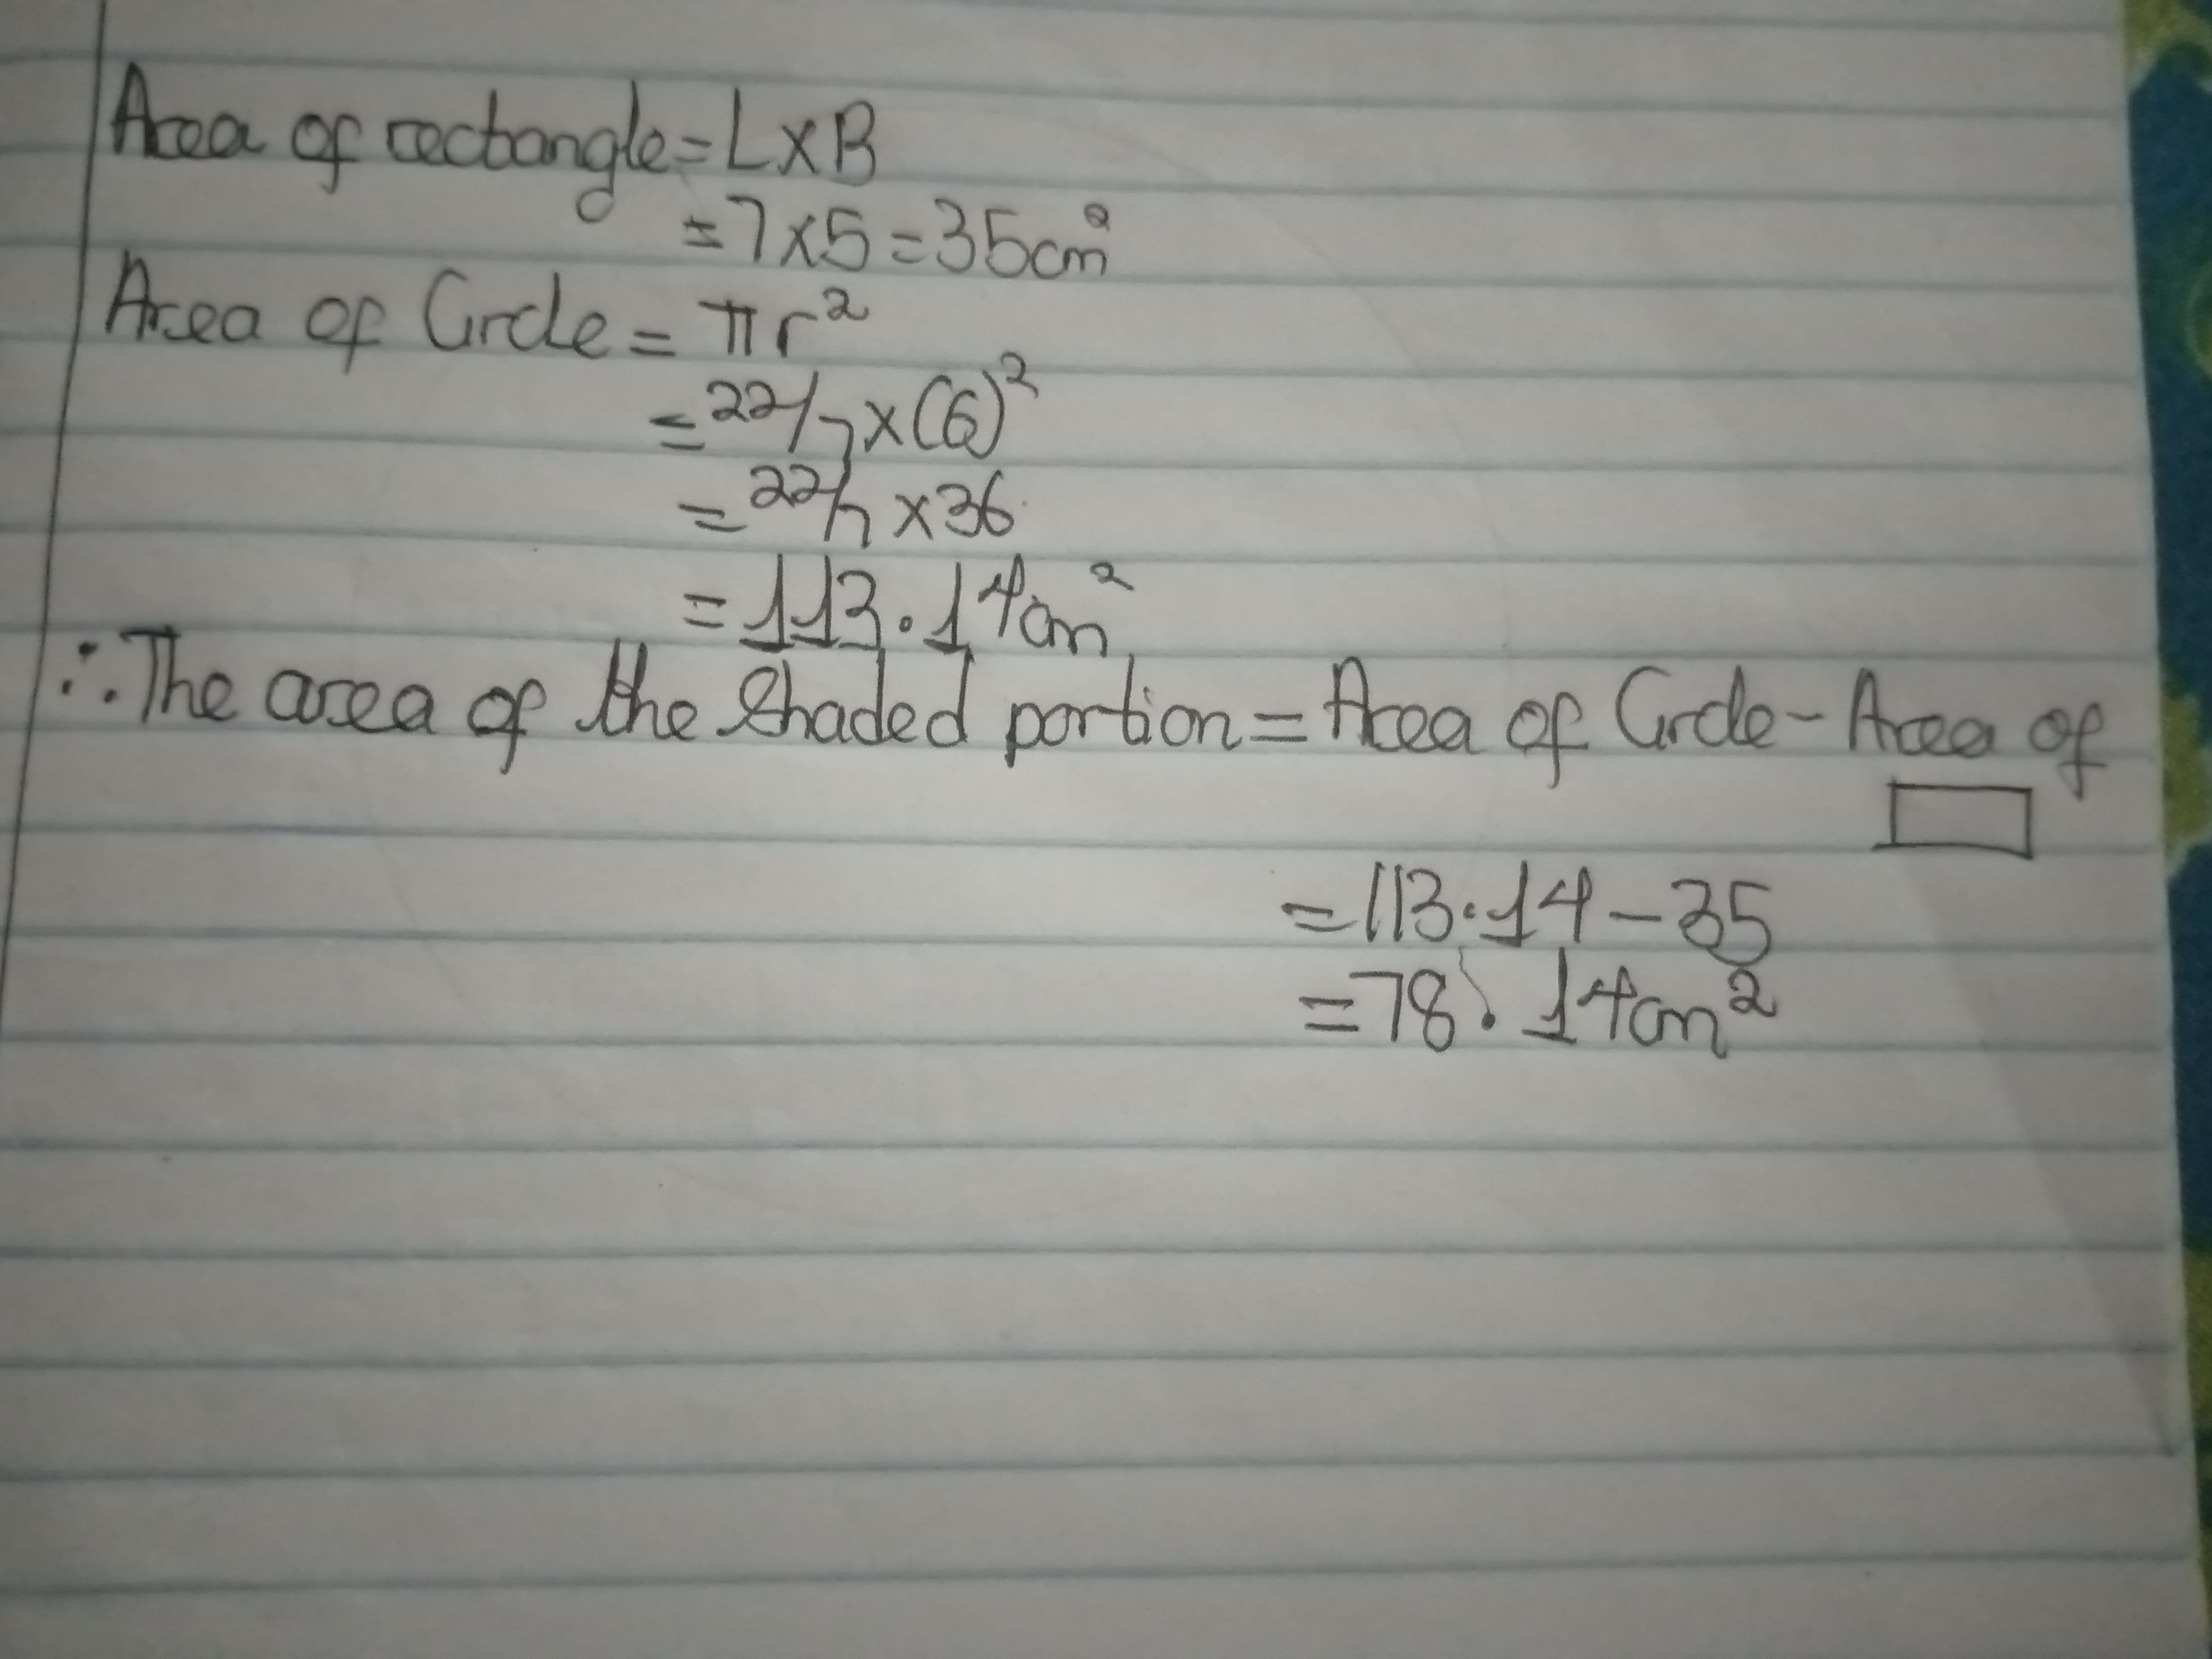 Area of rectangle = L×B
= 7×5 = 35cm²
Area of Circle = πr²
= 22/7 × (6)²
= 22/7 × 36
= 113.14cm²
∴ The area of the shaded portion = Area of Circle - Area of
= 113.14 - 35
= 78.14cm²